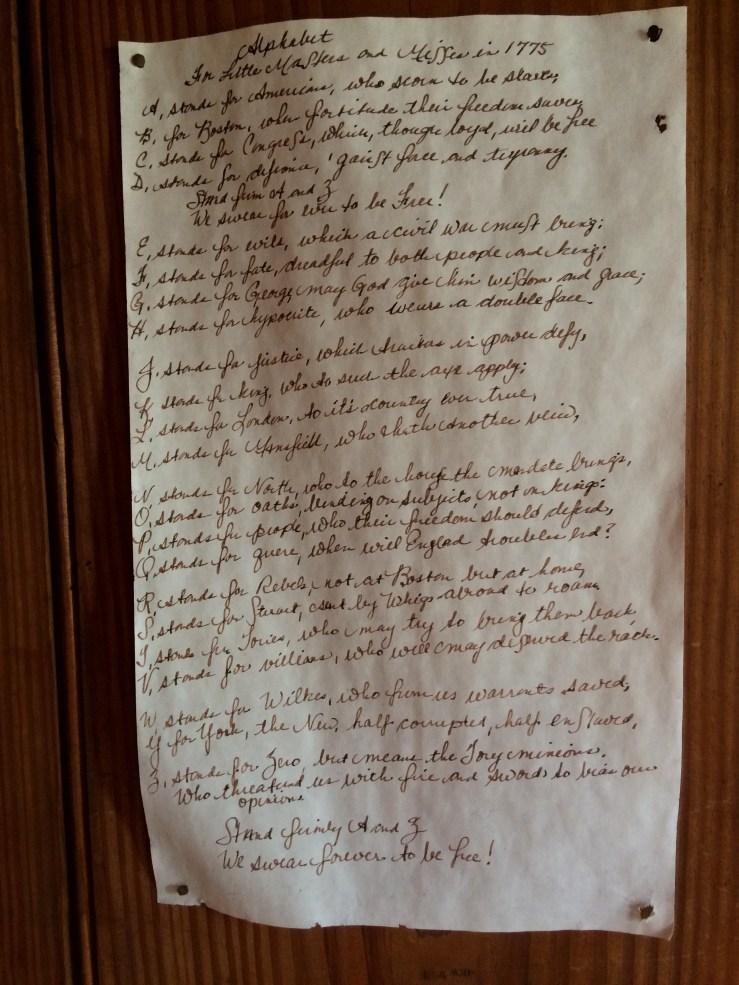 Alphabet
For Little Masters and Misses in 1775
A, stands for Americans, who scorn to be slaves,
B, for Boston, when fortitude their freedom saves,
C. stands for Congress, which, though loyal, will be free
D, stands for defence, 'gainst force and tyranny.
Stand firm A and Z
We swear for ever to be Free!
E, stands for evils, which a civil war must bring;
F, stands for fate, dreadful to both people and king;
G. stands for George, may God give him wisdom and grace;
H, stands for hypocrite, who wears a double face.
J. stands for justice, which traitors in power defy,
K stands for king, who to such the axe apply;
L. stands for London, to it's country ever true,
M. stands for Mansfield, who hath another view,
N. stands for North, who to the house the mandate brings,
O, stands for oaths, binding on subjects, not on kings:
P, stands for people, who their freedom should defend,
Q stands for quere, when will England troubles end?
R, stands for Rebels, not at Boston but at home,
S, stands for Stuart, sent by Whigs abroad to roam
T, stands for Tories, who may try to bring them back,
V, stands for villians, who will may deserved the rack.
W, stands for Wilkes, who from us warrants saved,
Y for York, the New, half corrupted, half enslaved,
Z, stands for Zero, but means the Tory minions.
Who threatend us with fire and sword to bias our
opinions
Stand firmly A and Z
We swear forever to be free!